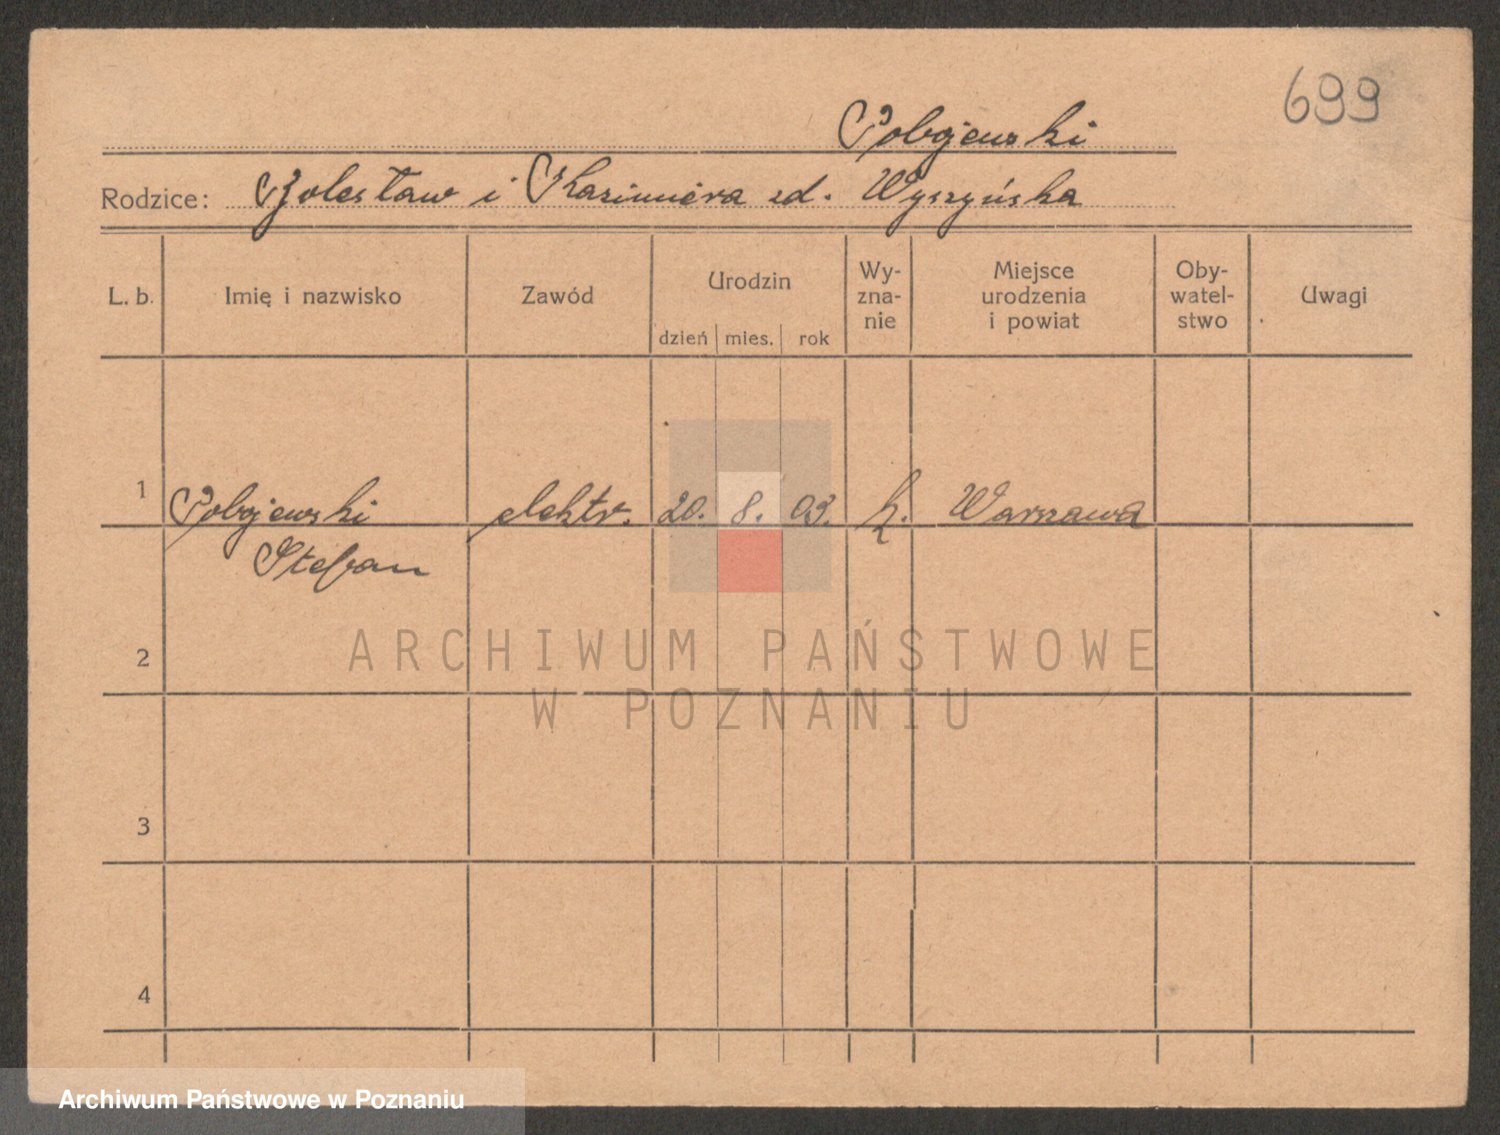 699
Pobojewski
Rodzice: Bolesław i Kazimiera zd. Wyszyńska
L. b. Imię i nazwisko Zawód Urodzin dzień mies. rok Wy-zna-nie Miejsce urodzenia i powiat Oby-watel-stwo Uwagi
1 Pobojewski elektr. 20. 8. 03. k. Warszawa
Stefan
ARCHIWUM PAŃSTWOWE
2
W POZNANIU
3
4
Archiwum Państwowe w Poznaniu